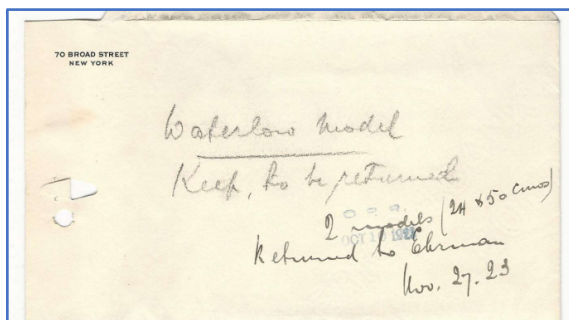 70 BROAD STREET
NEW YORK
Waterlow Model
Keep, to be returned
2 models (2H & 50 Cmos)
OCT 19
Returned to Ehrman
Nov. 27. 23